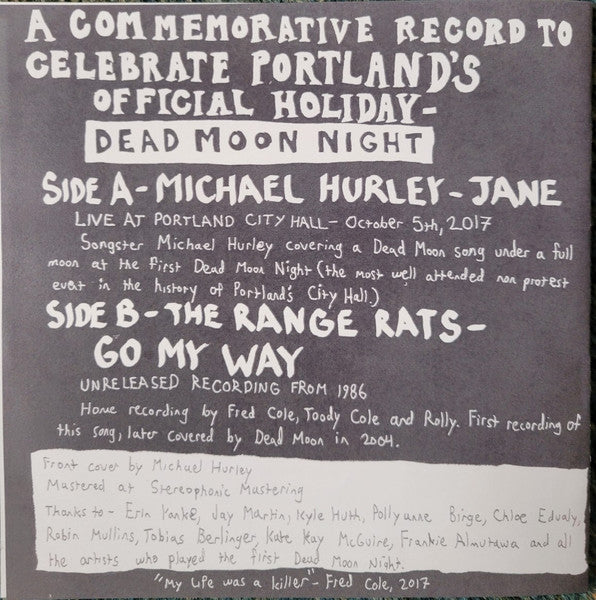 A COMMEMORATIVE RECORD TO
CELEBRATE PORTLAND'S
OFFICIAL HOLIDAY-
DEAD MOON NIGHT
SIDE A- MICHAEL HURLEY- JANE
LIVE AT PORTLAND CITY HALL- October 5th, 2017
Songster Michael Hurley covering a Dead Moon song under a full
moon at the first Dead Moon Night (the most well attended non protest
event in the history of Portland's City Hall.)
SIDE B- THE RANGE RATS-
GO MY WAY
UNRELEASED RECORDING FROM 1986
Home recording by Fred Cole, Toody Cole and Rolly. First recording of
this song, later covered by Dead Moon in 2004.
Front cover by Michael Hurley
Mastered at Stereophonic Mastering
Thanks to- Erin Yanke, Jay Martin, Kyle Huth, Pollyanne Birge, Chloe Edualy,
Robin Mullins, Tobias Berlinger, Kate Kay McGuire, Frankie Almutawa and all
the artists who played the first Dead Moon Night.
"My life was a killer"- Fred Cole, 2017